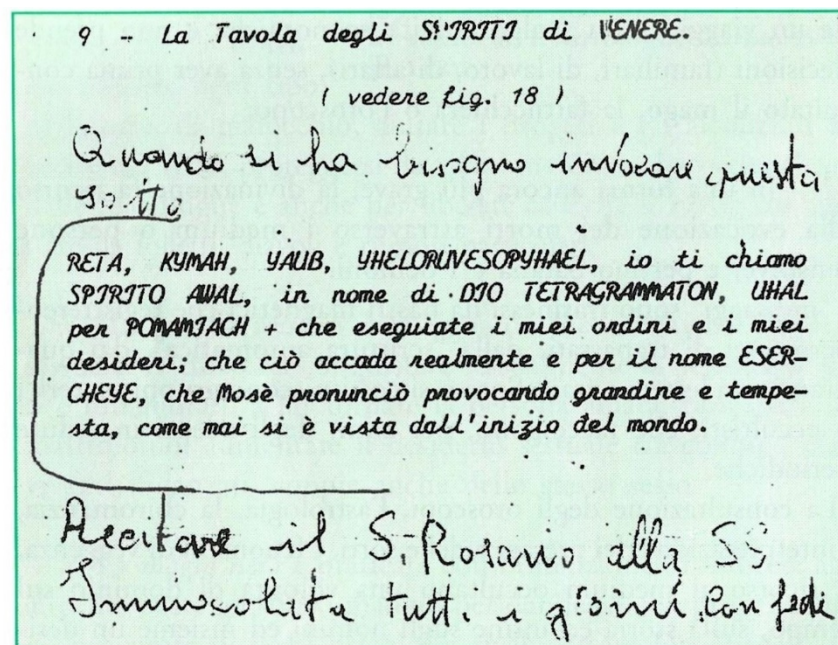 9 - La Tavola degli SPIRITI di VENERE.
( vedere fig. 18 )
Quando si ha bisogno invocare questa
RETA, KYMAH, YAUB, YHELORUVESOPYHAEL, io ti chiamo
SPIRITO AWAL, in nome di DIO TETRAGRAMMATON, UHAL
per POMAMIACH + che eseguiate i miei ordini e i miei
desideri; che ciò accada realmente e per il nome ESER-
CHEYE, che Mosè pronunciò provocando grandine e tempe-
sta, come mai si è vista dall'inizio del mondo.
Recitare il S. Rosario alla SS
Immacolata tutti i giorni con fede